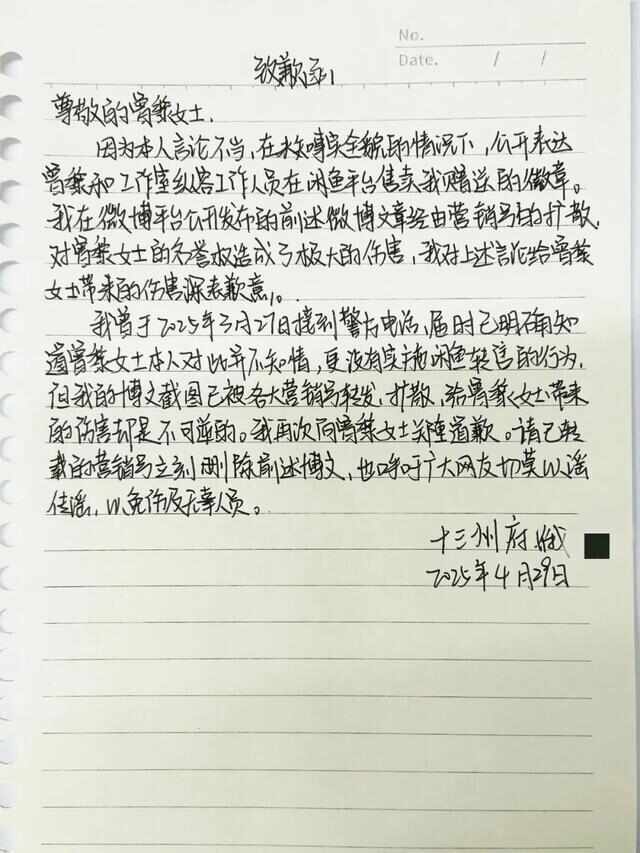 No.
Date. / /
致歉函
尊敬的曾黎女士,
因为本人言论不当,在未嘚实全貌的情况下,公开表达
曾黎和工作室纵容工作人员在闲鱼平台售卖我赠送的徽章。
我在微博平台公开发布的前述微博文章经由营销号的扩散,
对曾黎女士的名誉权造成了极大的伤害,我对上述言论给曾黎
女士带来的伤害深表歉意。
我曾于2025年3月27日接到警方电话,届时已明确知
道曾黎女士本人对此并不知情,更没有实施闲鱼转售的行为,
但我的博文截图已被各大营销号转发、扩散,给曾黎女士带来
的伤害却是不可逆的。我再次向曾黎女士郑重道歉。请已转
载的营销号立刻删除前述博文,也呼吁广大网友切莫以谣
传谣,以免伤及无辜人员。
十三州府
2025年4月29日